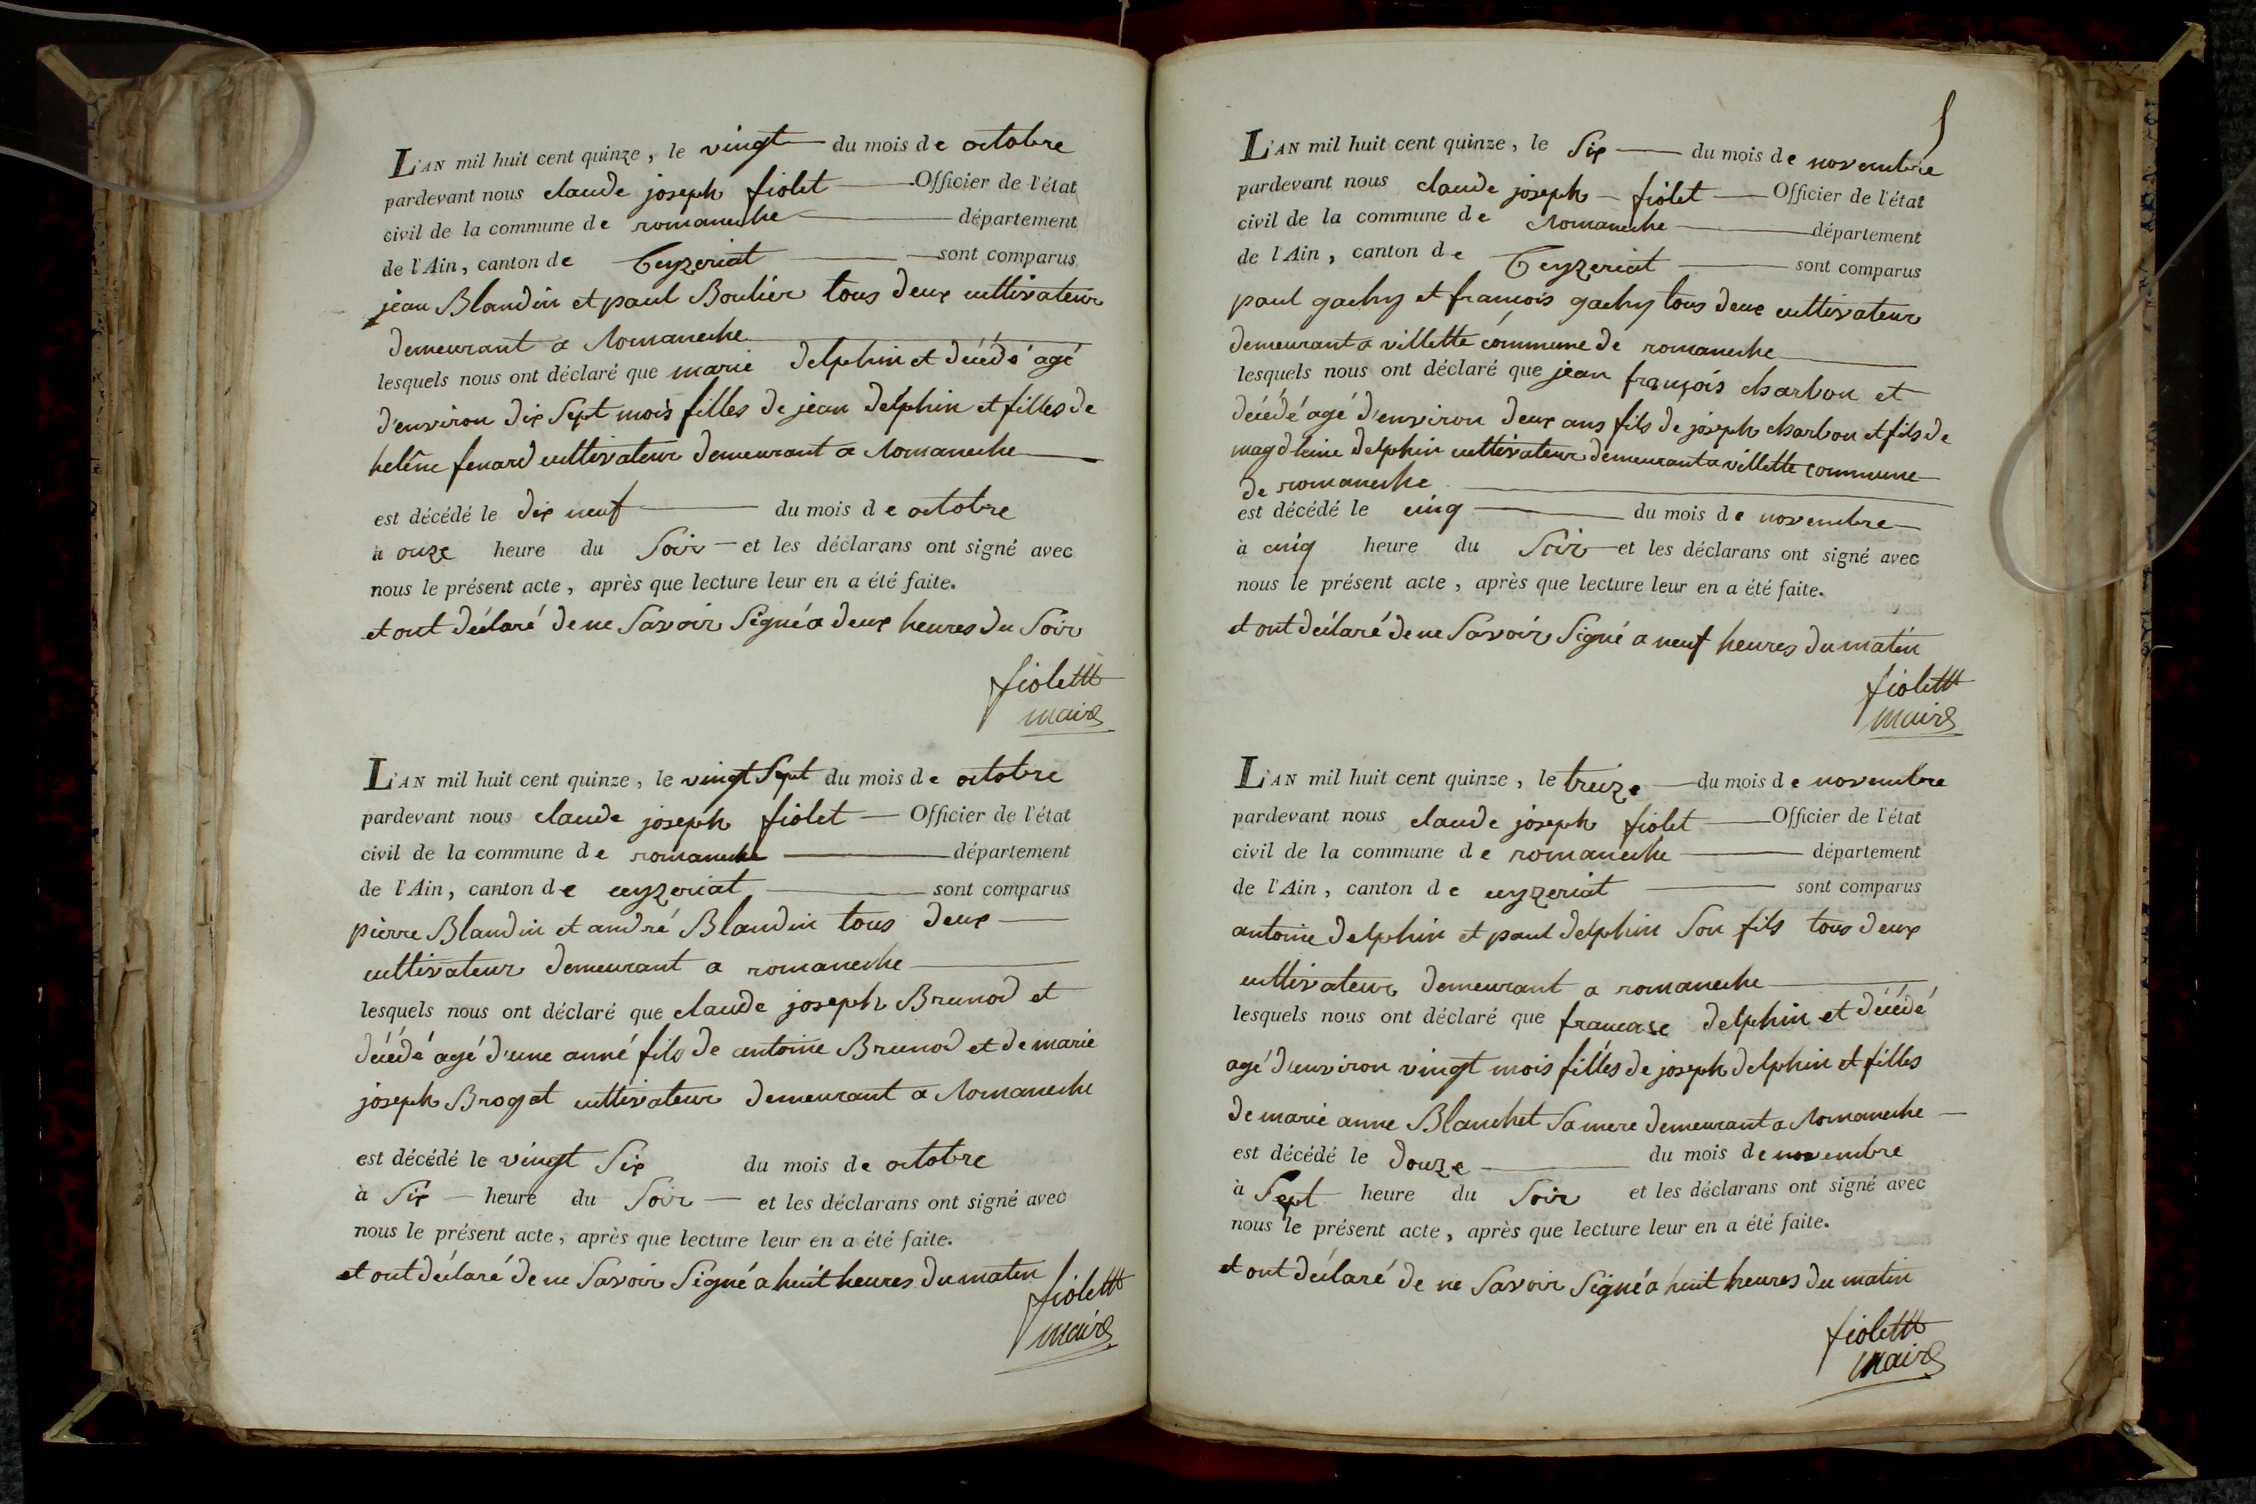 L'AN mil huit cent quinze, le vingt du mois de octobre
pardevant nous claude joseph fiolet Officier de l'état
civil de la commune de romaneche département
de l'Ain, canton de Ceyzeriat sont comparus
jean Blandin et paul Boulier tous deux cultivateur
demeurant a Romaneche
lesquels nous ont déclaré que marie delphin et décédé agé
d'environ dix sept mois filles de jean delphin et filles de
heléne fenard cultivateur demeurant a Romaneche
est décédé le dix neuf du mois de octobre
à onze heure du Soir et les déclarans ont signé avec
nous le présent acte, après que lecture leur en a été faite.
et ont déclaré de ne Savoir Signé a deux heures du Soir
fiolet
maire
L'AN mil huit cent quinze, le vingt Sept du mois de octobre
pardevant nous claude joseph fiolet Officier de l'état
civil de la commune de romaneche département
de l'Ain, canton de ceyzeriat sont comparus
pierre Blandin et andré Blandin tous deux
cultivateur demeurant a romaneche
lesquels nous ont déclaré que claude joseph Brunod et
décédé agé d'une anné fils de antoine Brunod et de marie
joseph Brogat cultivateur demeurant a Romaneche
est décédé le vingt Six du mois de octobre
à Six heure du Soir et les déclarans ont signé avec
nous le présent acte, après que lecture leur en a été faite.
et ont déclaré de ne Savoir Signé a huit heures du matin
fiolet
maire
L'AN mil huit cent quinze, le Six du mois de novembre
pardevant nous claude joseph fiolet Officier de l'état
civil de la commune de Romaneche département
de l'Ain, canton de Ceyzeriat sont comparus
paul gachy et françois gachy tous deux cultivateur
demeurant a villette commune de romaneche
lesquels nous ont déclaré que jean françois charbon et
décédé agé d'environ deux ans fils de joseph charbon et fils de
magdleine delphin cultivateur demeurant a villette commune
de romaneche
est décédé le cinq du mois de novembre
à cinq heure du Soir et les déclarans ont signé avec
nous le présent acte, après que lecture leur en a été faite.
et ont déclaré de ne Savoir Signé a neuf heures du matin
fiolet
maire
L'AN mil huit cent quinze, le treize du mois de novembre
pardevant nous claude joseph fiolet Officier de l'état
civil de la commune de romaneche département
de l'Ain, canton de ceyzeriat sont comparus
antoine delphin et paul delphin Son fils tous deux
cultivateur demeurant a romaneche
lesquels nous ont déclaré que francase delphin et décédé
agé d'environ vingt mois filles de joseph delphin et filles
de marie anne Blanchet Sa mere demeurant a Romaneche
est décédé le douze du mois de novembre
à Sept heure du Soir et les déclarans ont signé avec
nous le présent acte, après que lecture leur en a été faite.
et ont déclaré de ne Savoir Signé a huit heures du matin
fiolet
maire